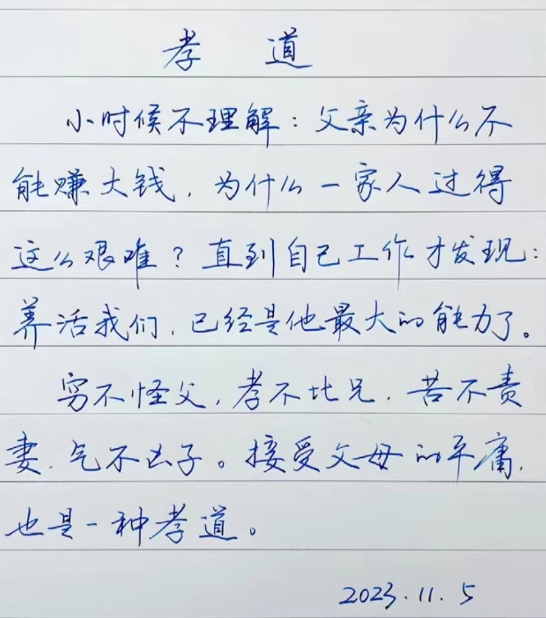 孝 道
小时候不理解：父亲为什么不
能赚大钱，为什么一家人过得
这么艰难？直到自己工作才发现：
养活我们，已经是他最大的能力了。
穷不怪父，孝不比兄，苦不责
妻，气不凶子。接受父母的平庸，
也是一种孝道。
2023.11.5